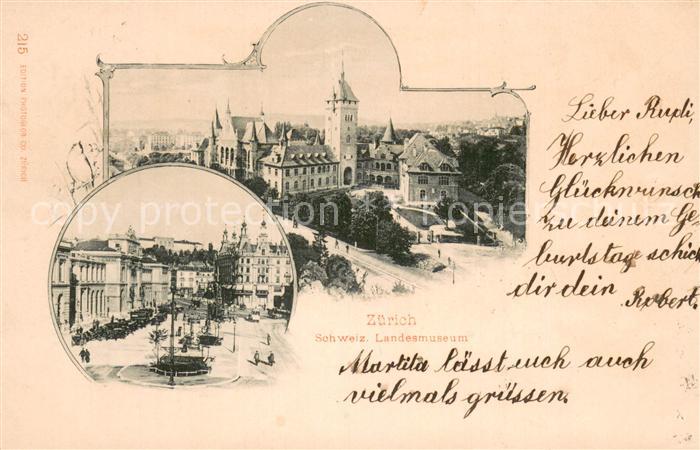 215 EDITION PHOTOGLOB CO. ZÜRICH
Lieber Rudi,
Herzlichen
Glückwunsch
zu deinem Ge
burtstage schick
dir dein Robert.
Zürich
Schweiz. Landesmuseum
Martita lässt euch auch
vielmals grüssen.
copy protection